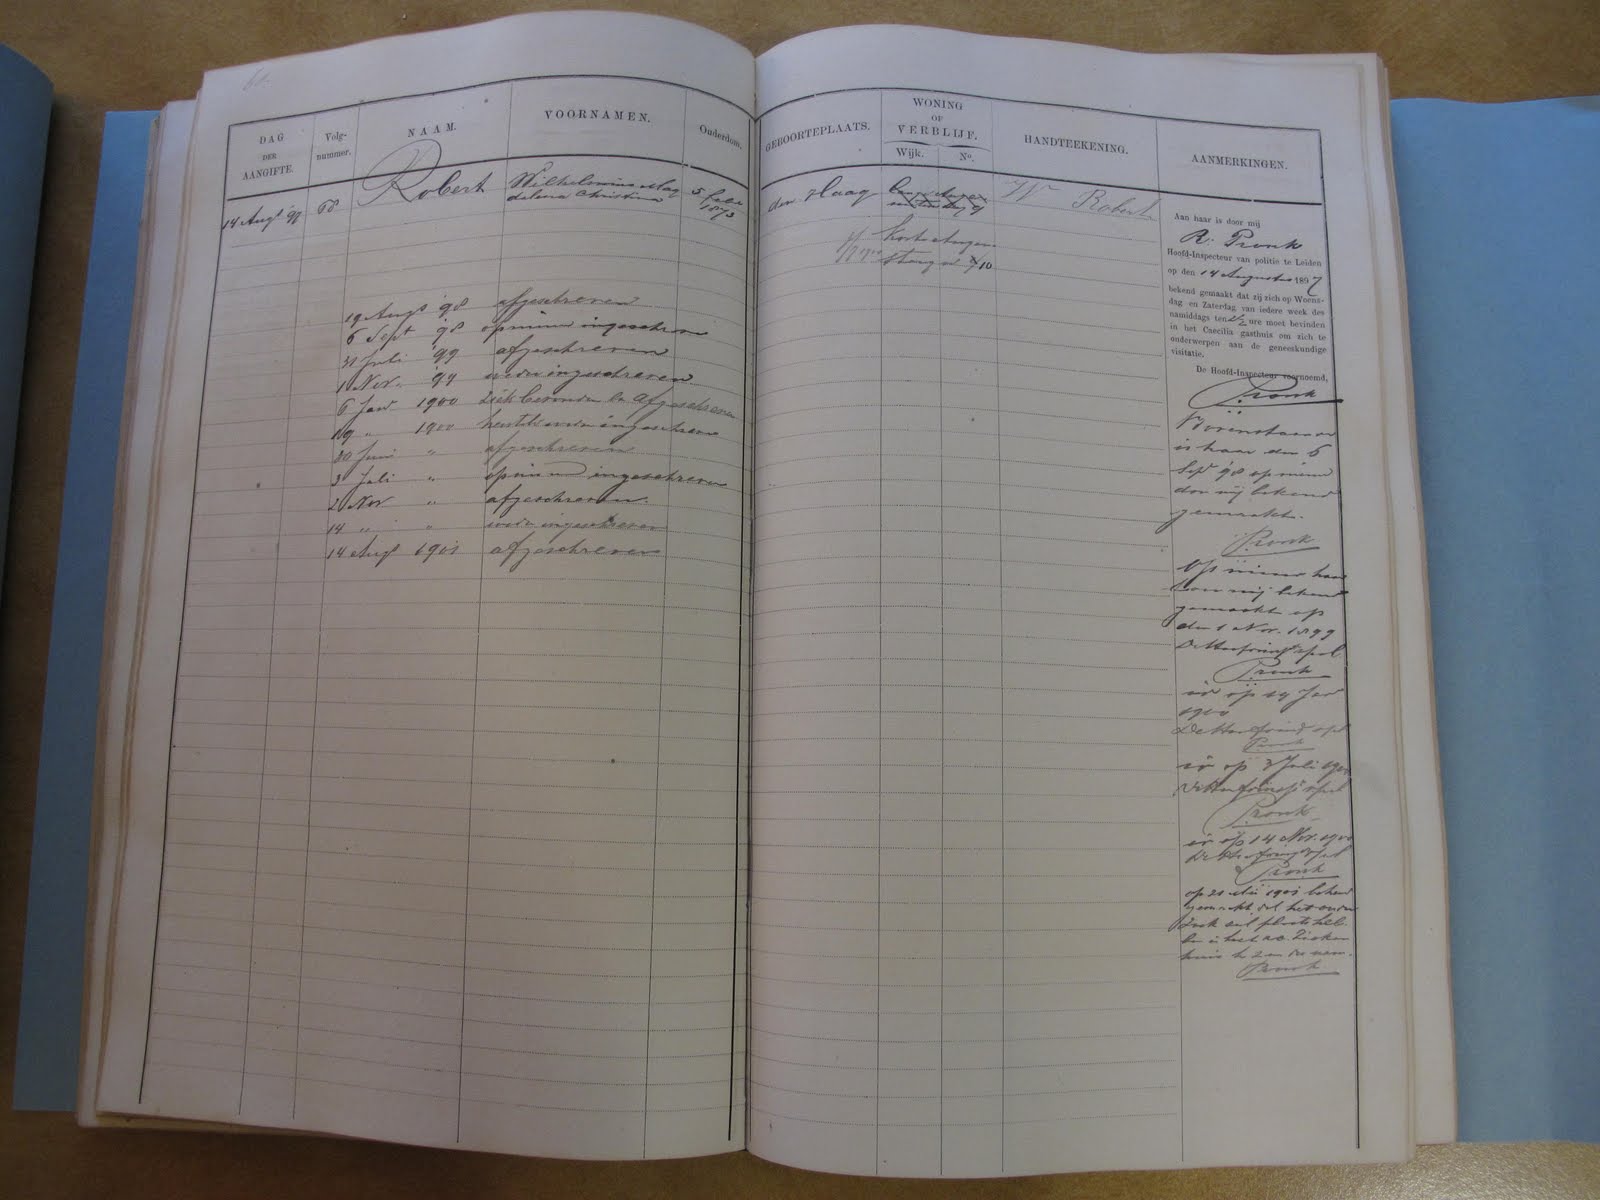 DAG
DER
AANGIFTE.
Volg-
nummer.
NAAM.
VOORNAMEN.
Ouderdom.
14 Aug '97
68
Robert
Wilhelmina Mag
dalena Christina
5 Febr
1873
19 Aug '98 afgeschreven
6 Sept '98 opnieuw ingeschreven
31 Juli '99 afgeschreven
1 Nov. '99 weder ingeschreven
6 Jan 1900 Ziek bevonden en Afgeschreven
19 " 1900 weder ingeschreven
20 Juni " afgeschreven
3 Juli " opnieuw ingeschreven
2 Nov " afgeschreven.
14 " " weder ingeschreven
14 Aug 1901 afgeschreven
GEBOORTEPLAATS.
WONING
OF
VERBLIJF.
Wijk.
No.
HANDTEEKENING.
AANMERKINGEN.
den Haag
9
Korte
steeg 10
W Robert
Aan haar is door mij
R. Pronk
Hoofd-Inspecteur van politie te Leiden
op den 14 Augustus 1897
bekend gemaakt dat zij zich op Woens-
dag en Zaterdag van iedere week des
namiddags ten 2½ ure moet bevinden
in het Caecilia gasthuis om zich te
onderwerpen aan de geneeskundige
visitatie.
De Hoofd-Inspecteur voornoemd,
Pronk
Bovenstaande
is haar den 6
Sept 98 opnieuw
door mij bekend
gemaakt.
Pronk
Op nieuw haar
door mij bekend
gemaakt op
den 1 Nov. 1899
De Hoofdinsp
Pronk
op 19 Jan
1900
De Hoofdinsp
Pronk
op 3 Juli 1900
De Hoofdinsp
Pronk
op 14 Nov. 1900
De Hoofdinsp
Pronk
op 21 1901 bekend
gemaakt dat het onder
zoek zal plaats heb
ben in het Zieken
huis
Pronk